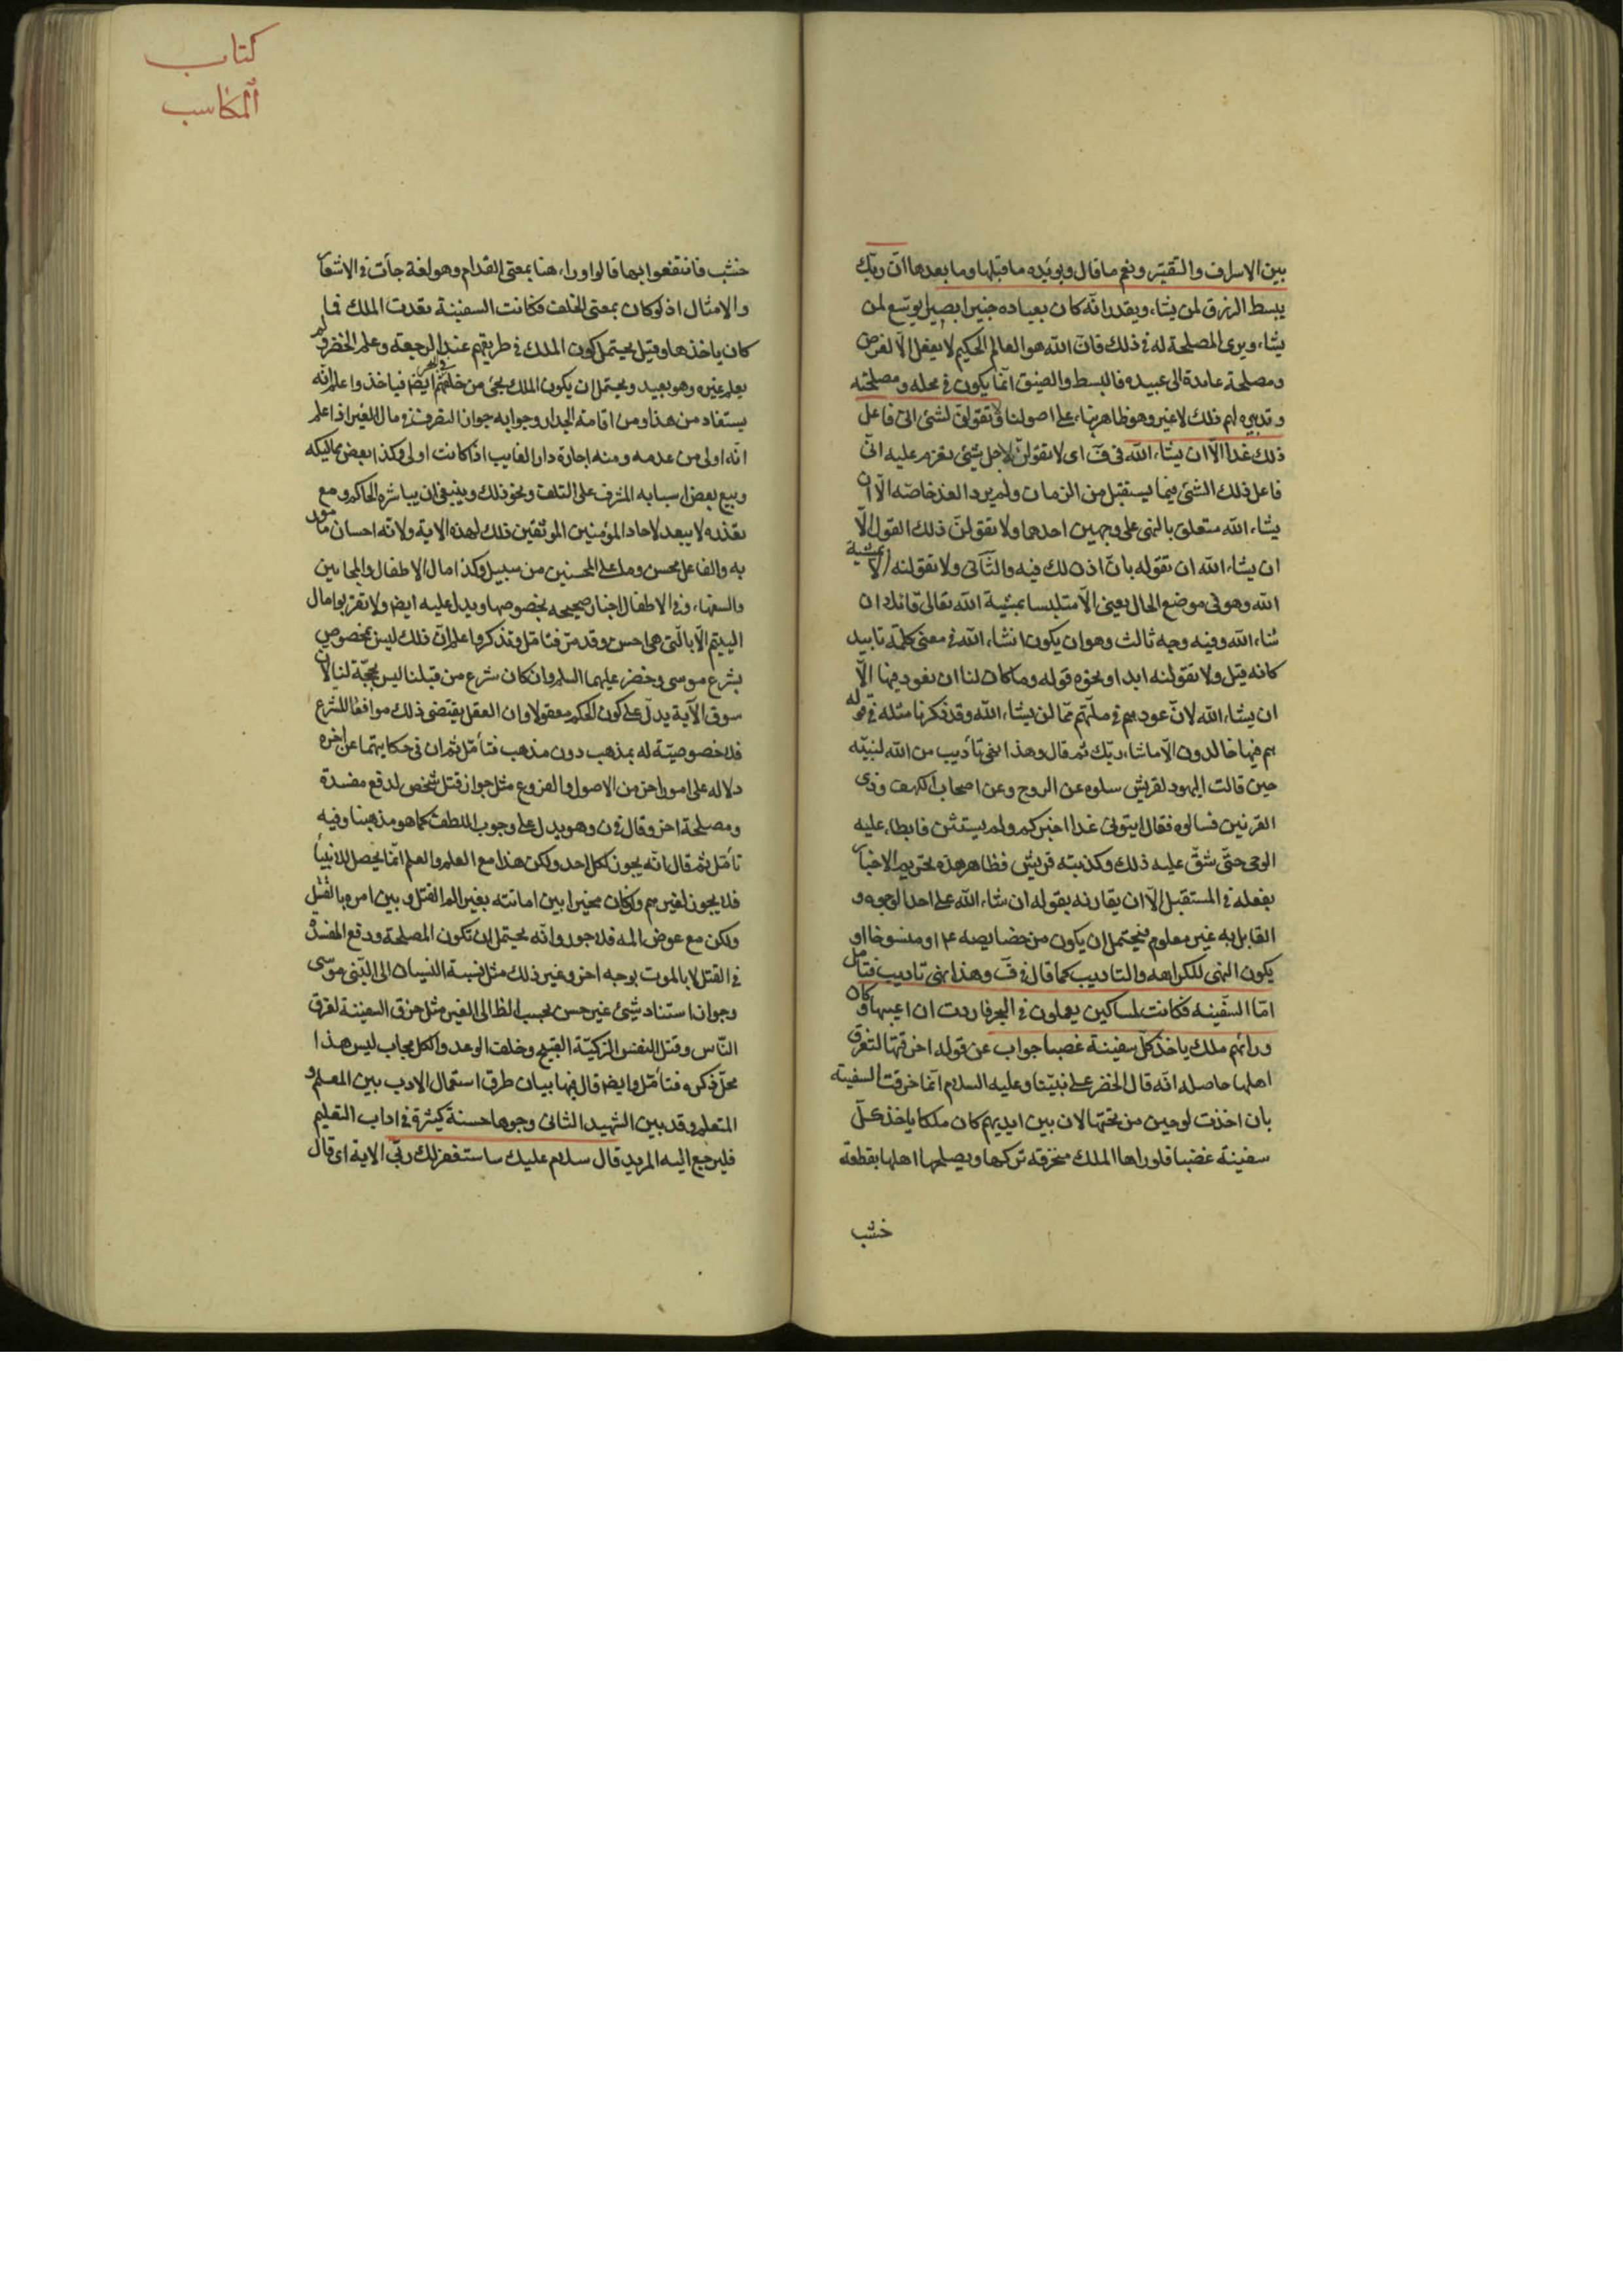 بين الاسراف والتقتير ونعم ما قال ويؤيده ما قبلها وما بعدها ان ربك
يبسط الرزق لمن يشاء ويقدر انه كان بعباده خبيرا بصيرا يوسع لمن
يشاء ويرى المصلحة له في ذلك فان الله هو العالم الحكيم لا يفعل الا لغرض
ومصلحة عايدة الى عبيده فالبسط والضيق انما يكون في محله ومصلحته
وتدبيره لهم ذلك لا غير وهو ظاهر بناء على اصولنا ولا تقولن لشئ انى فاعل
ذلك غدا الا ان يشاء الله في ف اى لا تقولن لاجل شئ تعزم عليه انى
فاعل ذلك الشئ فيما يستقبل من الزمان ولم يرد الغد خاصه الا ان
يشاء الله متعلق بالنهى على وجهين احدهما ولا تقولن ذلك القول الا
ان يشاء الله ان تقوله بان اذن لك فيه والثانى ولا تقولنه الا بمشية
الله وهو في موضع الحال يعنى الا متلبسا بمشية الله تعالى قائلا ان
شاء الله وفيه وجه ثالث وهو ان يكون انشاء الله في معنى كلمة تابيد
كانه قيل ولا تقولنه ابدا ونحوه قوله وما كان لنا ان نعود فيها الا
ان يشاء الله لان عودهم في ملتهم مما لن يشاء الله وقد ذكرنا مثله في قوله
هم فيها خالدون الا ما شاء ربك ثم قال وهذا نهى تأديب من الله لنبيه
حين قالت اليهود لقريش سلوه عن الروح وعن اصحاب الكهف وذى
القرنين فسالوه فقال ايتونى غدا اخبركم ولم يستثن فابطاء عليه
الوحى حتى شق عليه ذلك وكذبته قريش فظاهر هذه تحريم الاخبار
بفعله في المستقبل الا ان يقارنه بقوله ان شاء الله على احد الوجوه و
القايل به غير معلوم فيحتمل ان يكون من خصايصه ع او منسوخا او
يكون النهى للكراهه والتاديب كما قال في ف وهذا نهى تاديب فتامل
اما السفينه فكانت لمساكين يعملون في البحر فاردت ان اعيبها وكان
ورائهم ملك ياخذ كل سفينة غصبا جواب عن قوله اخرقتها لتغرق
اهلها حاصله انه قال الخضر على نبينا وعليه السلام انما خرقت السفينه
بان اخذت لوحين من تحتها لان بين ايديهم كان ملكا ياخذ كل
سفينة غضبا فلو راها الملك منخرقه تركها ويصلحها اهلها بقطعة
خشب
كتاب
المكاسب
خشب فانتفعوا بها قالوا وراء هنا بمعنى القدام وهو لغة جأت في الاشعار
والامثال اذ لو كان بمعنى الخلف فكانت السفينة تعدت الملك فما
كان ياخذها وقيل يحتمل كون الملك في طريقهم عند الرجعة وعلم الخضر ولم
يعلم غيره وهو بعيد ويحتمل ان يكون الملك يجئ من خلفهم في البحر ايضا فياخذ واعلم انه
يستفاد من هذا ومن اقامة الجدار وجوابه جواز التصرف في مال الغير اذا علم
انه اولى من عدمه ومنه اجارة دار الغايب اذا كانت اولى وكذا بعض مماليكه
وبيع بعض اسبابه المشرف على التلف ونحو ذلك وينبغى ان يباشره الحاكم ومع
تعذره لا يبعد لاحاد المؤمنين الموثقين ذلك لهذه الاية ولانه احسان مامور
به والفاعل محسن وما على المحسنين من سبيل وكذا مال الاطفال والمجانين
والسفهاء وفي الاطفال اخبار صحيحه بخصوصها ويدل عليه ايضا ولا تقربوا مال
اليتيم الا بالتى هى احسن وقد مر فتامل وتذكر واعلم ان ذلك ليس بمخصوص
بشرع موسى وخضر عليهما السلم وان كان شرع من قبلنا ليس بحجة لنا لان
سوق الآية يدل على كون الحكم معقولا وان العقل يقتضى ذلك موافقا للشرع
فلا خصوصية له بمذهب دون مذهب فتأمل ثم ان في حكايتهما عن اخره
دلاله على امور اخر من الاصول والفروع مثل جواز قتل شخص لدفع مفسدة
ومصلحة اخر وقال في ن وهو يدل على وجوب اللطف كما هو مذهبنا وفيه
تأمل ثم قال انه يجوز لكل احد ولكن هذا مع العلم والعلم انما يحصل للانبياء
فلا يجوز لغيرهم وان كان مخيرا بين اماتته بغير الم القتل وبين امره بالقتل
ولكن مع عوض الم فلا جور وانه يحتمل ان تكون المصلحة ودفع المفسدة
في القتل لا بالموت بوجه اخر وغير ذلك مثل نسبة النسيان الى النبى موسى
وجواز استناد شئ غير حسن بحسب الظ الى الغير مثل خرق السفينة لغرق
الناس وقتل النفس الزكية القبيح وخلف الوعد والكل مجاب ليس هذا
محل ذكره فتأمل وايضا قال فيها بيان طرق استعمال الادب بين المعلم و
المتعلم وقد بين الشهيد الثانى وجوها حسنة كثيرة في اداب التعليم
فليرجع اليه المريد قال سلام عليك ساستغفر لك ربى الاية اى قال